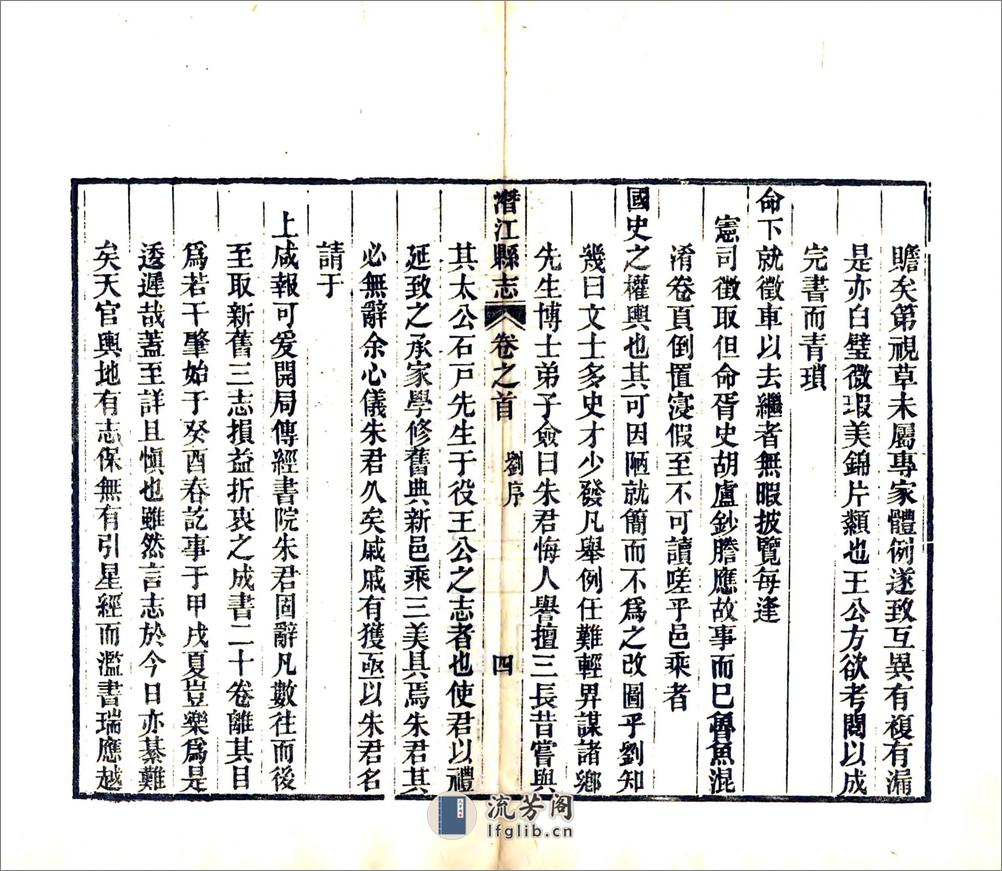 贍矣第視草未屬專家體例遂致互異有複有漏
是亦白璧微瑕美錦片纇也王公方欲考閱以成
完書而青瑣
命下就徵車以去繼者無暇披覽每逢
憲司徵取但命胥史胡盧鈔謄應故事而已魯魚混
淆卷頁倒置寖假至不可讀嗟乎邑乘者
國史之權輿也其可因陋就簡而不為之改圖乎劉知
幾曰文士多史才少發凡舉例任難輕畀謀諸鄉
先生博士弟子僉曰朱君悔人譽擅三長昔嘗與
潛江縣志 卷之首 劉序 四
其太公石戸先生于役王公之志者也使君以禮
延致之承家學修舊典新邑乘三美具焉朱君其
必無辭余心儀朱君久矣戚戚有獲亟以朱君名
請于
上咸報可爰開局傳經書院朱君固辭凡數往而後
至取新舊三志損益折衷之成書二十卷離其目
爲若干肇始于癸酉春訖事于甲戌夏豈樂爲是
透遲哉蓋至詳且慎也雖然言志於今日亦綦難
矣天官輿地有志保無有引星經而濫書瑞應越
流芳阁
lfglib.cn